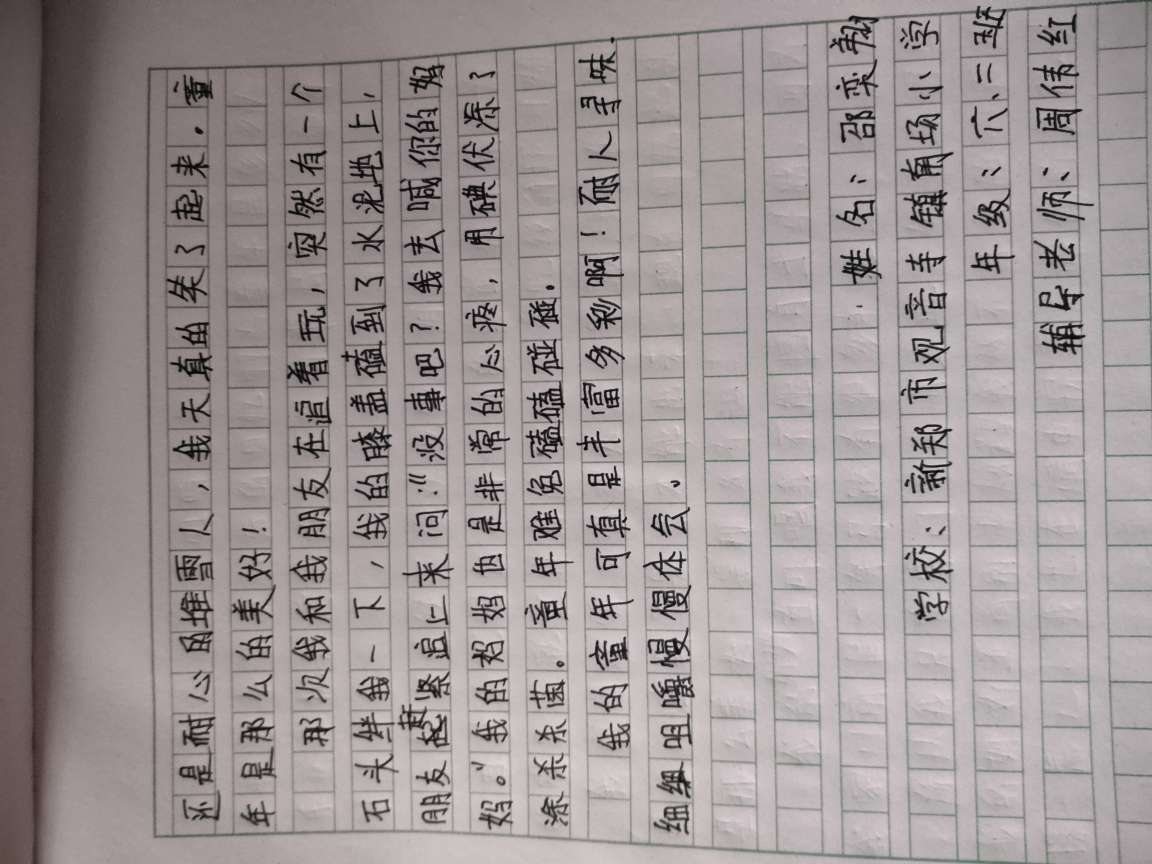 还是耐心的堆雪人，我天真的笑了起来．童
年是那么的美好！
那次我和我朋友在追着玩，突然有一个
石头绊我一下，我的膝盖磕到了水泥地上，
朋友赶紧追上来问：“没事吧？我去喊你的妈
妈。”我的妈妈也是非常的心疼，用碘伏涂了
涂杀杀菌。童年难免磕磕碰碰．
我的童年可真是丰富多彩啊！耐人寻味．
细细咀嚼慢慢体会。
姓名：邵奕翔
学校：新郑市观音寺镇角场小学
年级：六、二班
辅导老师：周伟红